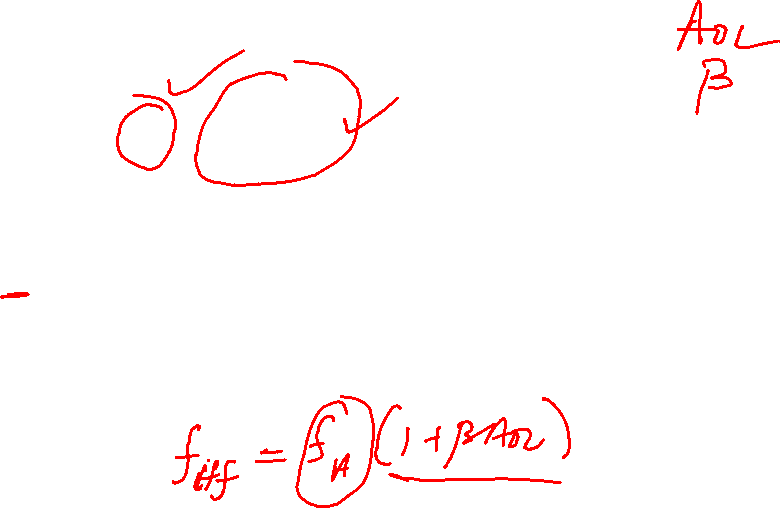 AOL
β
feff = fH (1 + β AOL)